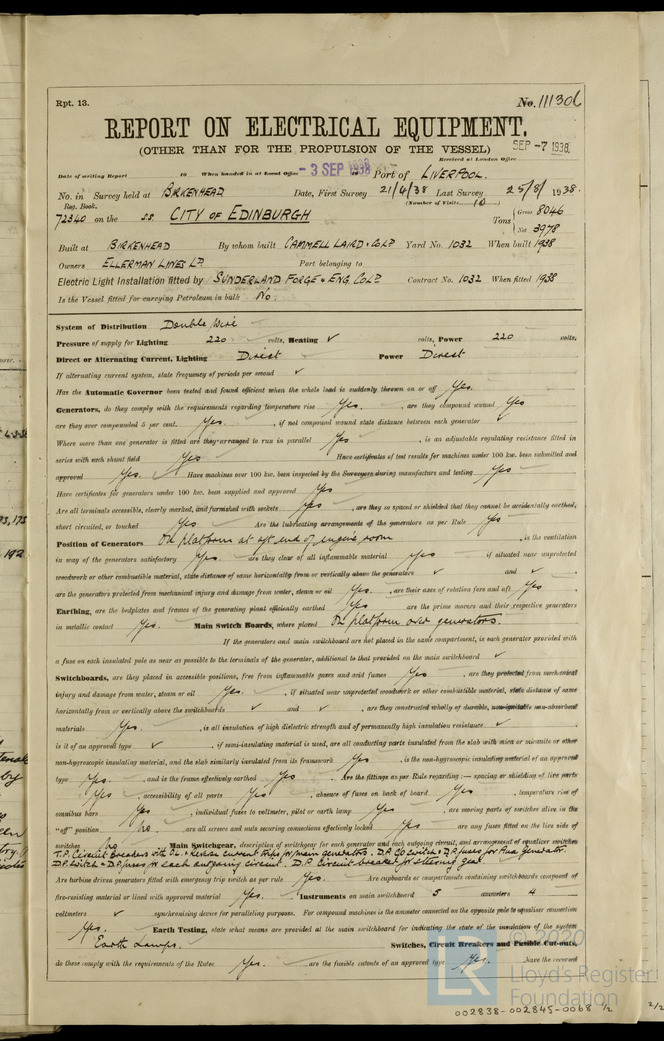 Rpt. 13.
No. 111306
REPORT ON ELECTRICAL EQUIPMENT.
(OTHER THAN FOR THE PROPULSION OF THE VESSEL)
SEP -7 1938
Received at London Office
Date of writing Report to When handed in at Local Office - 3 SEP 1938 Port of LIVERPOOL.
No. in Survey held at BIRKENHEAD Date, First Survey 21/4/38 Last Survey 25/8/ 1938.
Reg. Book. (Number of Visits 10 )
72340 on the S.S. CITY OF EDINBURGH Tons { Gross 8046
Net 3978
Built at BIRKENHEAD By whom built CAMMELL LAIRD & Co LD Yard No. 1032 When built 1938
Owners ELLERMAN LINES LD. Port belonging to
Electric Light Installation fitted by SUNDERLAND FORGE & ENG. Co LD Contract No. 1032 When fitted 1938
Is the Vessel fitted for carrying Petroleum in bulk No.
System of Distribution Double Wire
Pressure of supply for Lighting 220 volts, Heating ✓ volts, Power 220 volts,
Direct or Alternating Current, Lighting Direct Power Direct
If alternating current system, state frequency of periods per second ✓
Has the Automatic Governor been tested and found efficient when the whole load is suddenly thrown on or off Yes.
Generators, do they comply with the requirements regarding temperature rise Yes. , are they compound wound Yes
are they over compounded 5 per cent. Yes. , if not compound wound state distance between each generator ✓
Where more than one generator is fitted are they arranged to run in parallel Yes , is an adjustable regulating resistance fitted in
series with each shunt field Yes Have certificates of test results for machines over 100 kw. been submitted and
approved Yes. Have machines over 100 kw. been inspected by the Surveyors during manufacture and testing Yes
Have certificates for generators under 100 kw. been supplied and approved Yes
Are all terminals accessible, clearly marked, and furnished with sockets Yes , are they so spaced or shielded that they cannot be accidentally earthed,
short circuited, or touched Yes Are the lubricating arrangements of the generators as per Rule Yes
Position of Generators On platform at aft end of engine room , is the ventilation
in way of the generators satisfactory Yes. are they clear of all inflammable material Yes if situated near unprotected
woodwork or other combustible material, state distance of same horizontally from or vertically above the generators ✓ and ✓
are the generators protected from mechanical injury and damage from water, steam or oil Yes. , are their axes of rotation fore and aft Yes
Earthing, are the bedplates and frames of the generating plant efficiently earthed Yes are the prime movers and their respective generators
in metallic contact Yes. Main Switch Boards, where placed On platform over generators.
If the generators and main switchboard are not placed in the same compartment, is each generator provided with
a fuse on each insulated pole as near as possible to the terminals of the generator, additional to that provided on the main switchboard ✓
Switchboards, are they placed in accessible positions, free from inflammable gases and acid fumes Yes , are they protected from mechanical
injury and damage from water, steam or oil Yes. , if situated near unprotected woodwork or other combustible material, state distance of same
horizontally from or vertically above the switchboards ✓ and ✓ , are they constructed wholly of durable, non-ignitable non-absorbent
materials Yes. , is all insulation of high dielectric strength and of permanently high insulation resistance ✓
is it of an approved type ✓ , if semi-insulating material is used, are all conducting parts insulated from the slab with mica or micanite or other
non-hygroscopic insulating material, and the slab similarly insulated from its framework Yes. , is the non-hygroscopic insulating material of an approved
type Yes. , and is the frame effectively earthed Yes . Are the fittings as per Rule regarding :— spacing or shielding of live parts
Yes , accessibility of all parts Yes , absence of fuses on back of board Yes , temperature rise of
omnibus bars Yes , individual fuses to voltmeter, pilot or earth lamp Yes , are moving parts of switches alive in the
"off" position No. , are all screws and nuts securing connections effectively locked Yes are any fuses on the live side of
switches No Main Switchgear, description of switchgear for each generator and each outgoing circuit, and arrangement of equaliser switches
T.P. Circuit Breakers with OL & Reverse current trips for main generators. D.P. CO switch & D.P. fuses for Aux Generator.
D.P. switch & D.P. fuses for each outgoing circuit. D.P. Circuit breaker for steering gear
Are turbine driven generators fitted with emergency trip switch as per rule Yes. Are cupboards or compartments containing switchboards composed of
fire-resisting material or lined with approved material Yes. Instruments on main switchboard 5 ammeters 4
voltmeters ✓ synchronising device for paralleling purposes. For compound machines is the ammeter connected on the opposite pole to equaliser connection
Yes. Earth Testing, state what means are provided at the main switchboard for indicating the state of the insulation of the system
Earth Lamps. Switches, Circuit Breakers and Fusible Cut-outs,
do these comply with the requirements of the Rules Yes. are the fusible cutouts of an approved type Yes. , have the reversed
© 2020
LR
Lloyd's Register
Foundation
002838-002845-0068 1/2